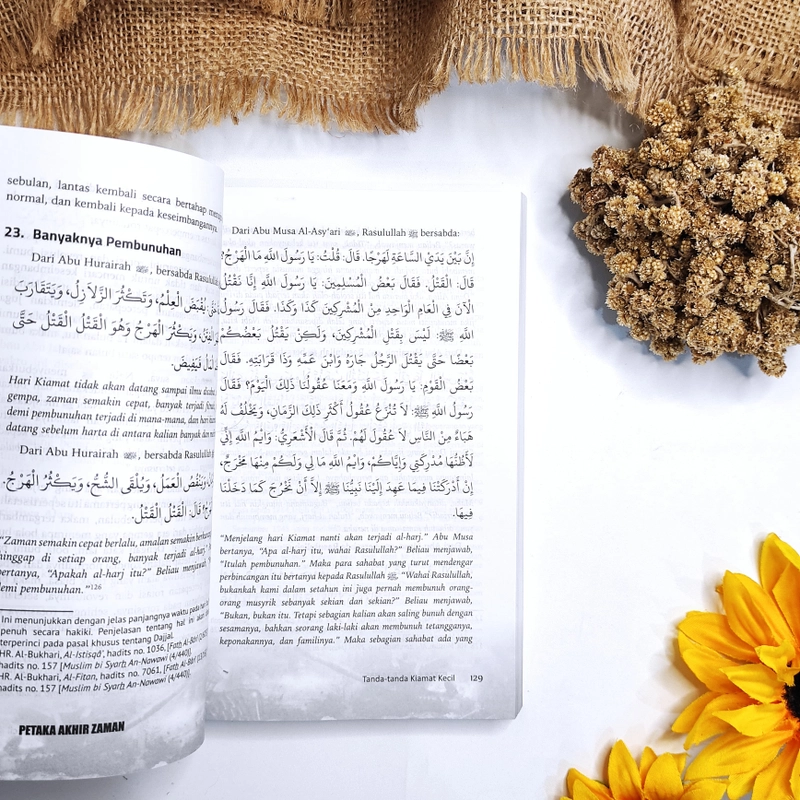 sebulan, lantas kembali secara bertahap
normal, dan kembali kepada keseimbangannya.
23. Banyaknya Pembunuhan
Dari Abu Hurairah ﷺ, bersabda Rasulul
يُقْبَضَ الْعِلْمُ، وَتَكْثُرَ الزَّلَازِلُ، وَيَتَقَارَبَ
وَيَكْثُرَ الْهَرْجُ وَهُوَ الْقَتْلُ الْقَتْلُ حَتَّى
الْمَالُ فَيَفِيضَ.
Hari Kiamat tidak akan datang sampai ilmu
gempa, zaman semakin cepat, banyak terjadi
demi pembunuhan terjadi di mana-mana, dan hari
datang sebelum harta di antara kalian banyak dan
Dari Abu Hurairah, bersabda Rasulullah
وَيَنْقُصُ الْعَمَلُ، وَيُلْقَى الشُّحُّ، وَيَكْثُرُ الْهَرْجُ
قَالَ: الْقَتْلُ الْقَتْلُ.
"Zaman semakin cepat berlalu, amalan semakin
hinggap di setiap orang, banyak terjadi al-harj."
bertanya, "Apakah al-harj itu?" Beliau menjawab,
demi pembunuhan."126
Ini menunjukkan dengan jelas panjangnya waktu pada hari
penuh secara hakiki. Penjelasan tentang hal ini akan
terperinci pada pasal khusus tentang Dajjal.
HR. Al-Bukhari, Al-Istisqâ', hadits no. 1036, [Fath Al-Bârî
HR. Al-Bukhari, Al-Fitan, hadits no. 7061, [Fath Al-Bârî
hadits no. 157 [Muslim bi Syarh An-Nawawi (4/440)].
hadits no. 157 [Muslim bi Syarh An-Nawawi (4/440)].
PETAKA AKHIR ZAMAN
Dari Abu Musa Al-Asy'ari, Rasulullah ﷺ bersabda:
إِنَّ بَيْنَ يَدَيِ السَّاعَةِ لَهَرْجًا. قَالَ: قُلْتُ: يَا رَسُولَ اللَّهِ مَا الْهَرْجُ؟
قَالَ: الْقَتْلُ. فَقَالَ بَعْضُ الْمُسْلِمِينَ: يَا رَسُولَ اللَّهِ إِنَّا نَقْتُلُ
الْآنَ فِي الْعَامِ الْوَاحِدِ مِنْ الْمُشْرِكِينَ كَذَا وَكَذَا. فَقَالَ رَسُولُ
اللَّهِ ﷺ: لَيْسَ بِقَتْلِ الْمُشْرِكِينَ، وَلَكِنْ يَقْتُلُ بَعْضُكُمْ
بَعْضًا حَتَّى يَقْتُلَ الرَّجُلُ جَارَهُ وَابْنَ عَمِّهِ وَذَا قَرَابَتِهِ. فَقَالَ
بَعْضُ الْقَوْمِ: يَا رَسُولَ اللَّهِ وَمَعَنَا عُقُولُنَا ذَلِكَ الْيَوْمَ؟ فَقَالَ
رَسُولُ اللَّهِ ﷺ: لَا تُنْزَعُ عُقُولُ أَكْثَرِ ذَلِكَ الزَّمَانِ، وَيَخْلُفُ لَهُ
هَبَاءٌ مِنْ النَّاسِ لَا عُقُولَ لَهُمْ. ثُمَّ قَالَ الْأَشْعَرِيُّ: وَايْمُ اللَّهِ إِنِّي
لَأَظُنُّهَا مُدْرِكَتِي وَإِيَّاكُمْ، وَايْمُ اللَّهِ مَا لِي وَلَكُمْ مِنْهَا مَخْرَجٌ،
إِنْ أَدْرَكَتْنَا فِيمَا عَهِدَ إِلَيْنَا نَبِيُّنَا ﷺ إِلَّا أَنْ نَخْرُجَ كَمَا دَخَلْنَا
فِيهَا.
"Menjelang hari Kiamat nanti akan terjadi al-harj." Abu Musa
bertanya, "Apa al-harj itu, wahai Rasulullah?" Beliau menjawab,
"Itulah pembunuhan." Maka para sahabat yang turut mendengar
perbincangan itu bertanya kepada Rasulullah ﷺ, "Wahai Rasulullah,
bukankah kami dalam setahun ini juga pernah membunuh orang-
orang musyrik sebanyak sekian dan sekian?" Beliau menjawab,
"Bukan, bukan itu. Tetapi sebagian kalian akan saling bunuh dengan
sesamanya, bahkan seorang laki-laki akan membunuh tetangganya,
keponakannya, dan familinya." Maka sebagian sahabat ada yang
Tanda-tanda Kiamat Kecil 129